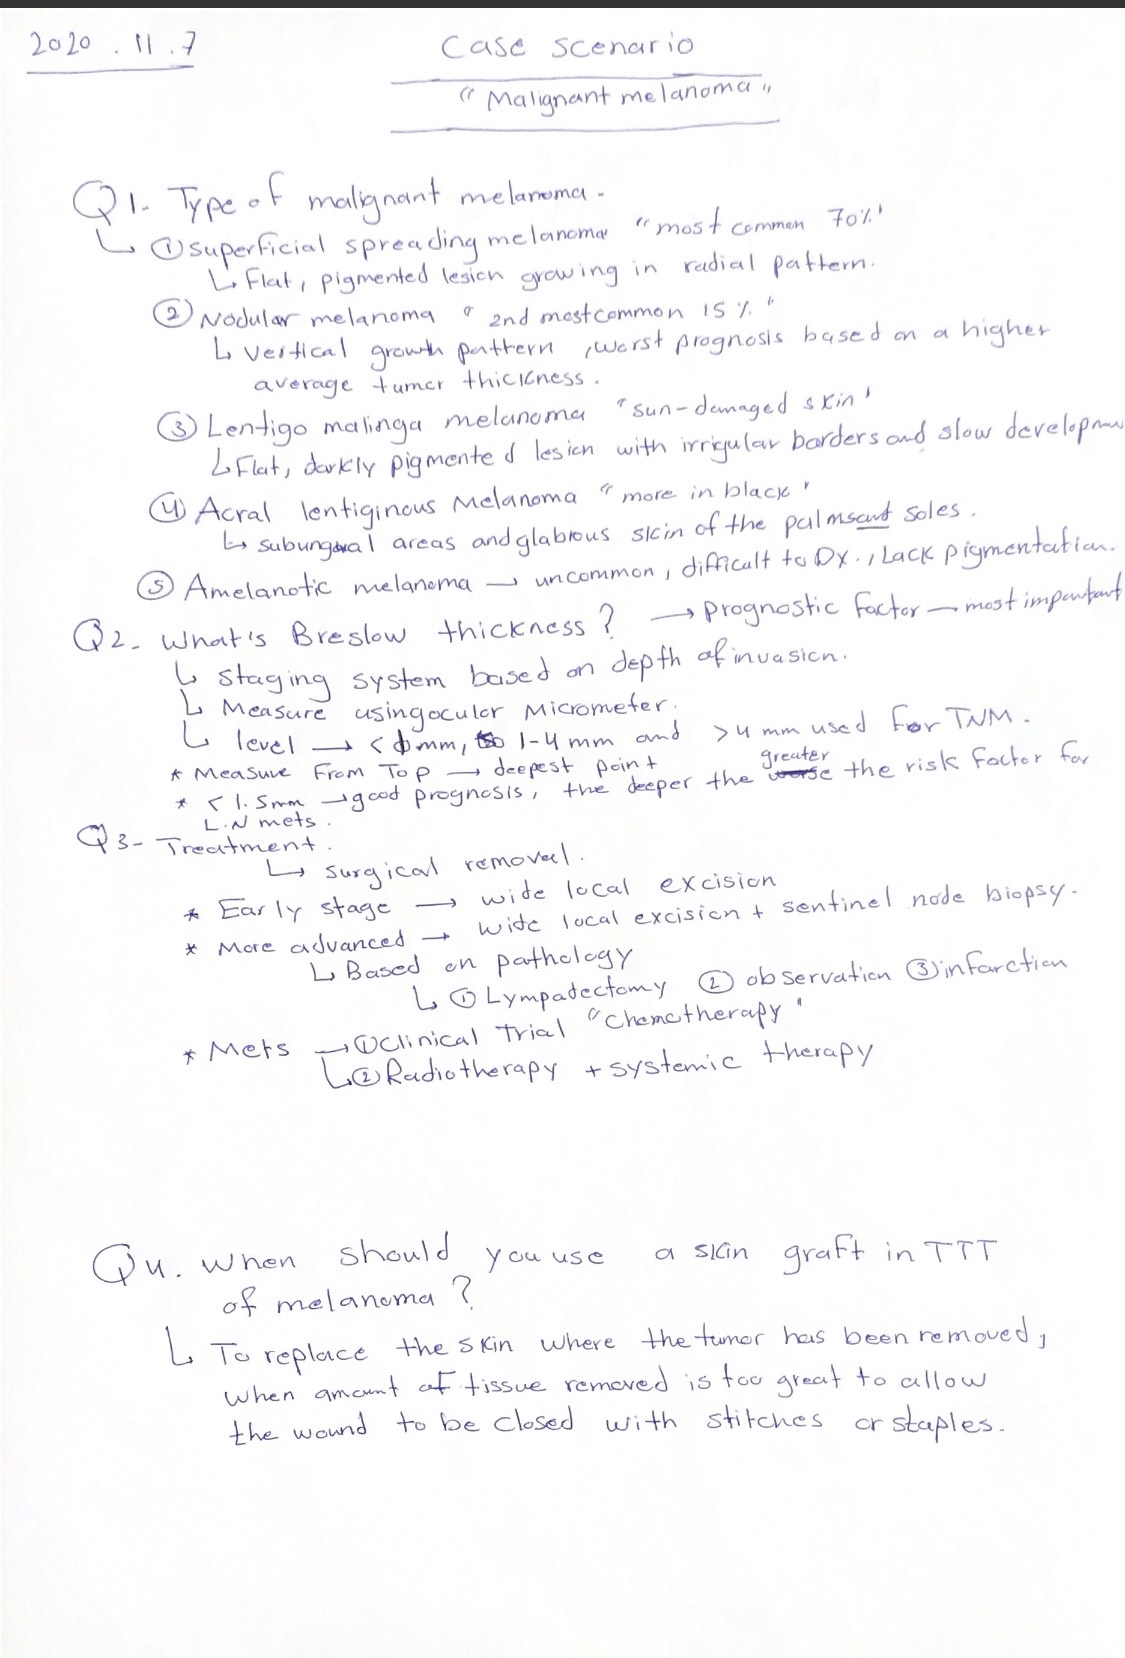 2020.11.7
Case scenario
"Malignant melanoma"
Q1- Type of malignant melanoma.
↳ ① superficial spreading melanoma "most common 70%"
↳ Flat, pigmented lesion growing in radial pattern.
② Nodular melanoma "2nd most common 15%"
↳ vertical growth pattern, worst prognosis based on a higher
average tumor thickness.
③ Lentigo malinga melanoma "sun-damaged skin"
↳ Flat, darkly pigmented lesion with irrigular borders and slow developm
④ Acral lentiginous Melanoma "more in black"
↳ subungual areas and glabrous skin of the palms and soles.
⑤ Amelanotic melanoma → uncommon, difficult to Dx., Lack pigmentation.
Q2- What's Breslow thickness? → prognostic factor — most important
↳ staging system based on depth of invasion.
↳ Measure using ocular Micrometer.
↳ level → <1mm, 1-4mm and >4mm used For TNM.
* Measure From Top → deepest point
* <1.5mm → good prognosis, the deeper the greater the risk factor for
L.N mets.
Q3- Treatment.
↳ surgical removal.
* Early stage → wide local excision
* More advanced → wide local excision + sentinel node biopsy.
↳ Based on pathology
↳ ① Lympadectomy ② observation ③ infarction
* Mets → ① Clinical Trial "Chemotherapy"
↳ ② Radiotherapy + systemic therapy
Q4. When should you use a skin graft in TTT
of melanoma?
↳ To replace the skin where the tumor has been removed,
when amount of tissue removed is too great to allow
the wound to be closed with stitches or staples.